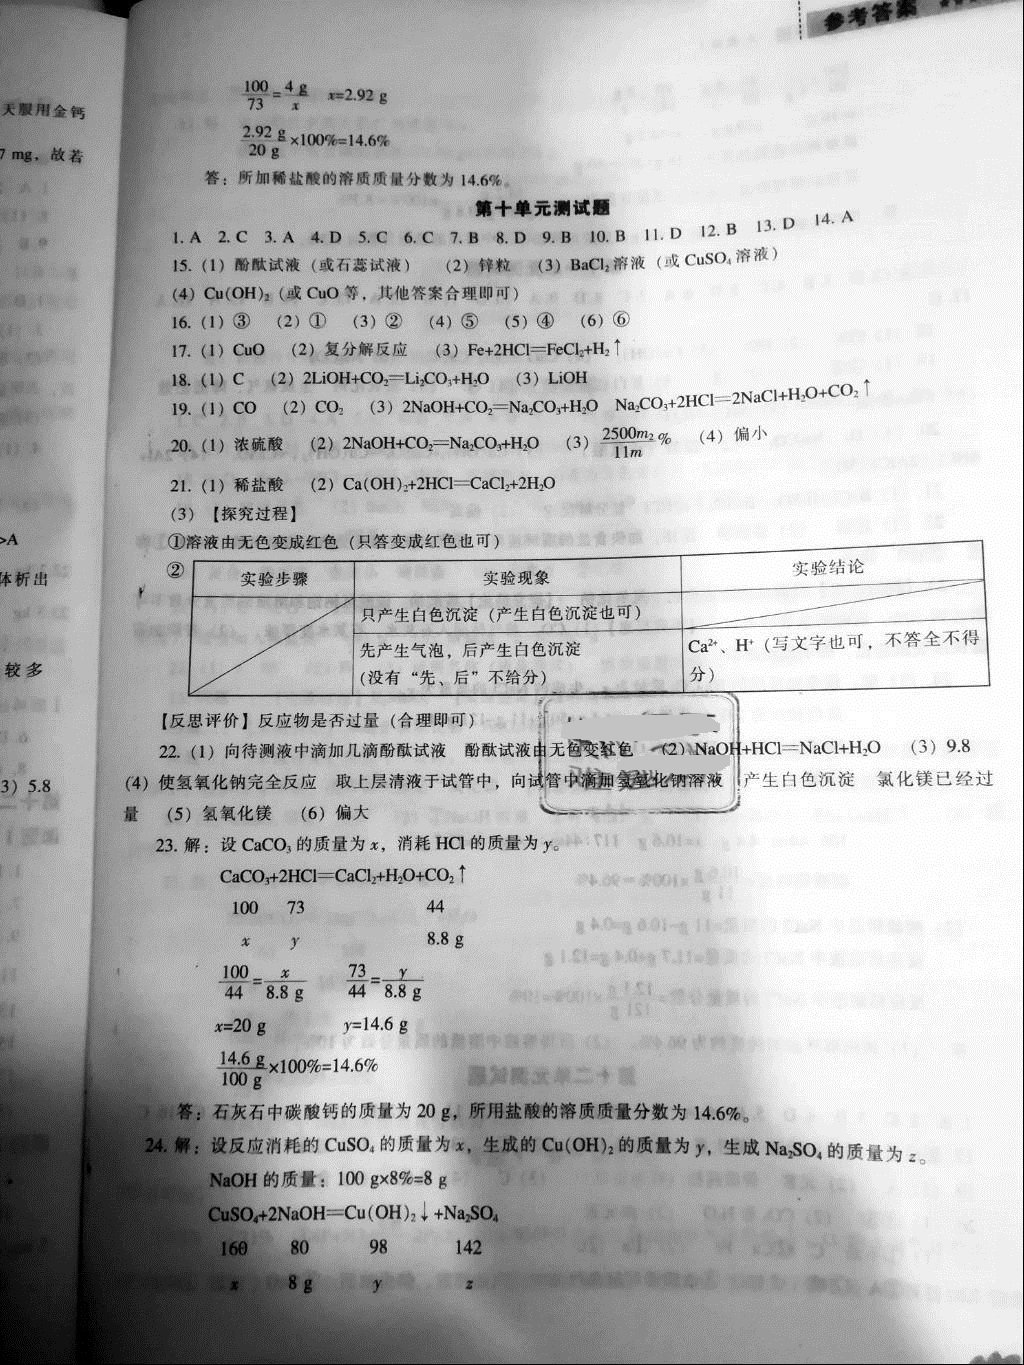 参考答案
天服用金钙
7 mg，故若
>A
体析出
较多
3）5.8
100/73=4 g/x x=2.92 g
2.92 g/20 g×100%=14.6%
答：所加稀盐酸的溶质质量分数为 14.6%。
第十单元测试题
1. A 2. C 3. A 4. D 5. C 6. C 7. B 8. D 9. B 10. B 11. D 12. B 13. D 14. A
15.（1）酚酞试液（或石蕊试液）（2）锌粒（3）BaCl₂溶液（或 CuSO₄溶液）
（4）Cu(OH)₂（或 CuO 等，其他答案合理即可）
16.（1）③（2）①（3）②（4）⑤（5）④（6）⑥
17.（1）CuO（2）复分解反应（3）Fe+2HCl═FeCl₂+H₂↑
18.（1）C（2）2LiOH+CO₂═Li₂CO₃+H₂O（3）LiOH
19.（1）CO（2）CO₂（3）2NaOH+CO₂═Na₂CO₃+H₂O Na₂CO₃+2HCl═2NaCl+H₂O+CO₂↑
20.（1）浓硫酸（2）2NaOH+CO₂═Na₂CO₃+H₂O（3）2500m₂/11m %（4）偏小
21.（1）稀盐酸（2）Ca(OH)₂+2HCl═CaCl₂+2H₂O
（3）【探究过程】
①溶液由无色变成红色（只答变成红色也可）
② 实验步骤 实验现象 实验结论
只产生白色沉淀（产生白色沉淀也可）
先产生气泡，后产生白色沉淀
（没有“先、后”不给分）
Ca²⁺、H⁺（写文字也可，不答全不得
分）
【反思评价】反应物是否过量（合理即可）
22.（1）向待测液中滴加几滴酚酞试液 酚酞试液由无色变红色（2）NaOH+HCl═NaCl+H₂O（3）9.8
（4）使氢氧化钠完全反应 取上层清液于试管中，向试管中滴加氢氧化钠溶液 产生白色沉淀 氯化镁已经过
量（5）氢氧化镁（6）偏大
23. 解：设 CaCO₃ 的质量为 x，消耗 HCl 的质量为 y。
CaCO₃+2HCl═CaCl₂+H₂O+CO₂↑
100 73 44
x y 8.8 g
100/44=x/8.8 g 73/44=y/8.8 g
x=20 g y=14.6 g
14.6 g/100 g×100%=14.6%
答：石灰石中碳酸钙的质量为 20 g，所用盐酸的溶质质量分数为 14.6%。
24. 解：设反应消耗的 CuSO₄ 的质量为 x，生成的 Cu(OH)₂ 的质量为 y，生成 Na₂SO₄ 的质量为 z。
NaOH 的质量：100 g×8%=8 g
CuSO₄+2NaOH═Cu(OH)₂↓+Na₂SO₄
160 80 98 142
x 8 g y z